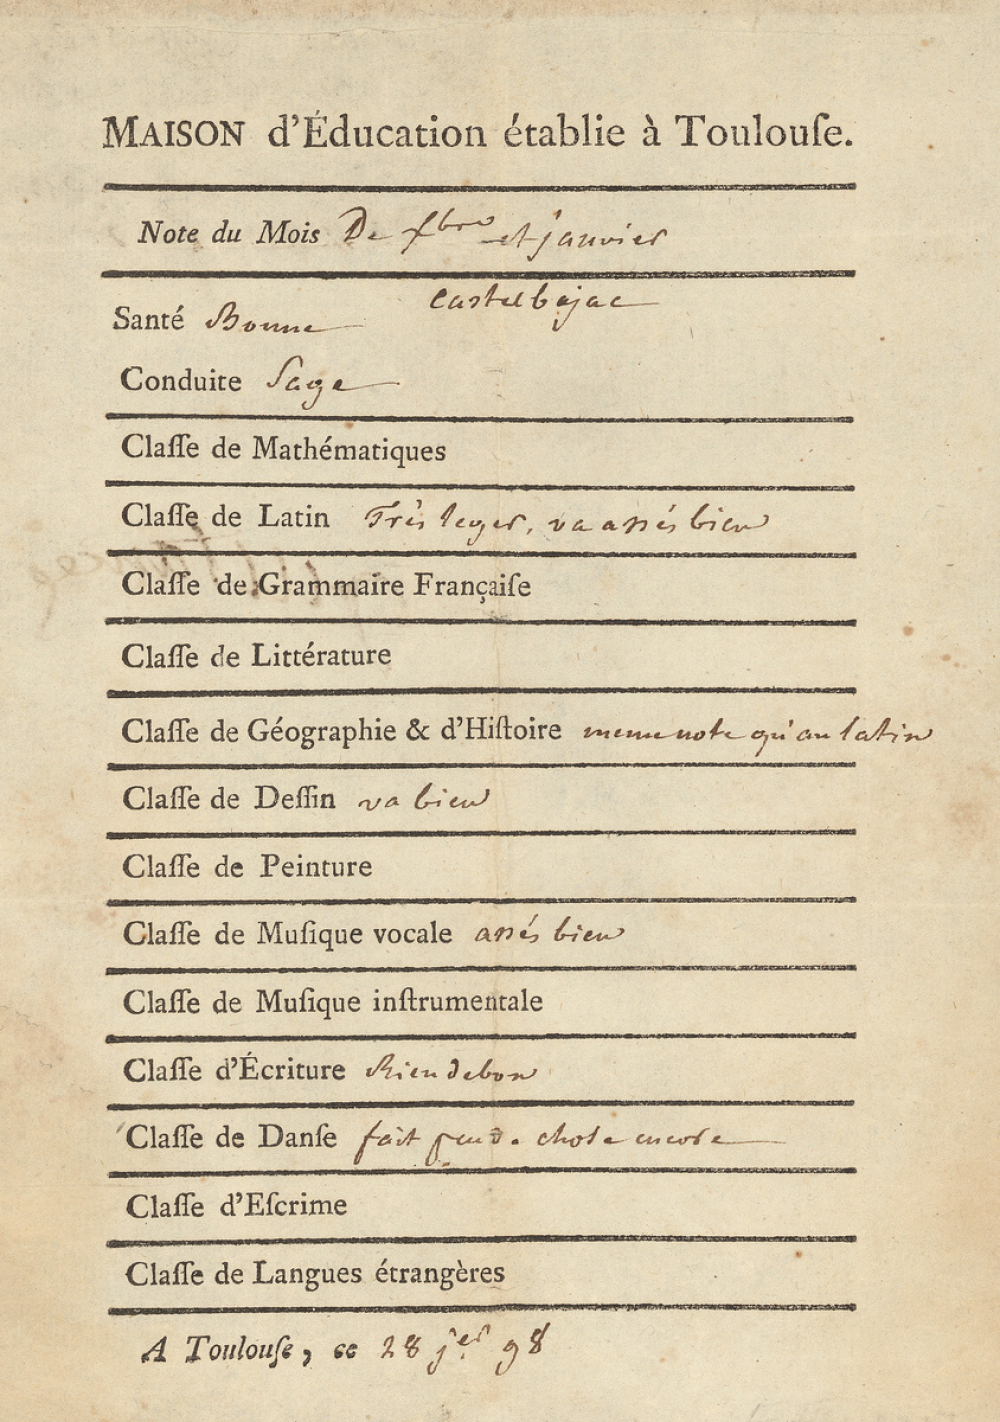 MAISON d'Éducation établie à Toulouſe.
Note du Mois De xbre et janvier
castelbajac
Santé Bonne
Conduite Sage
Claſſe de Mathématiques
Claſſe de Latin Très leger, va assés bien
Claſſe de Grammaire Françaiſe
Claſſe de Littérature
Claſſe de Géographie & d'Hiſtoire meme note qu'au latin
Claſſe de Deſſin va bien
Claſſe de Peinture
Claſſe de Muſique vocale assés bien
Claſſe de Muſique inſtrumentale
Claſſe d'Écriture Rien de bon
Claſſe de Danſe fait peu de chose encore
Claſſe d'Eſcrime
Claſſe de Langues étrangères
A Toulouſe, ce 28 jer 98